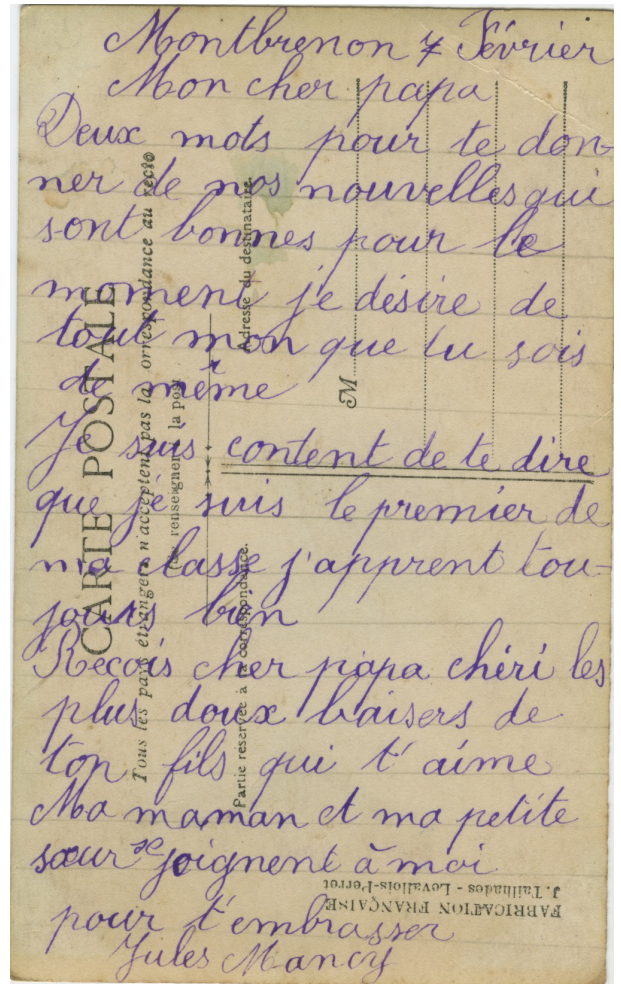 Montbrenon 7 Février
Mon cher papa
Deux mots pour te don-
ner de nos nouvelles qui
sont bonnes pour le
moment je désire de
tout mon que tu sois
de même
Je suis content de te dire
que je suis le premier de
ma classe j'apprent tou-
jours bien
Recois cher papa chéri les
plus doux baisers de
ton fils qui t'aime
Ma maman et ma petite
sœur se joignent à moi
pour t'embrasser
Jules Mancy
CARTE POSTALE
Tous les pays étrangers n'acceptent pas la correspondance au recto
(se renseigner à la poste)
Partie réservée à la correspondance.
Adresse du destinataire.
M
FABRICATION FRANÇAISE
J. Tailhades - Levallois-Perret